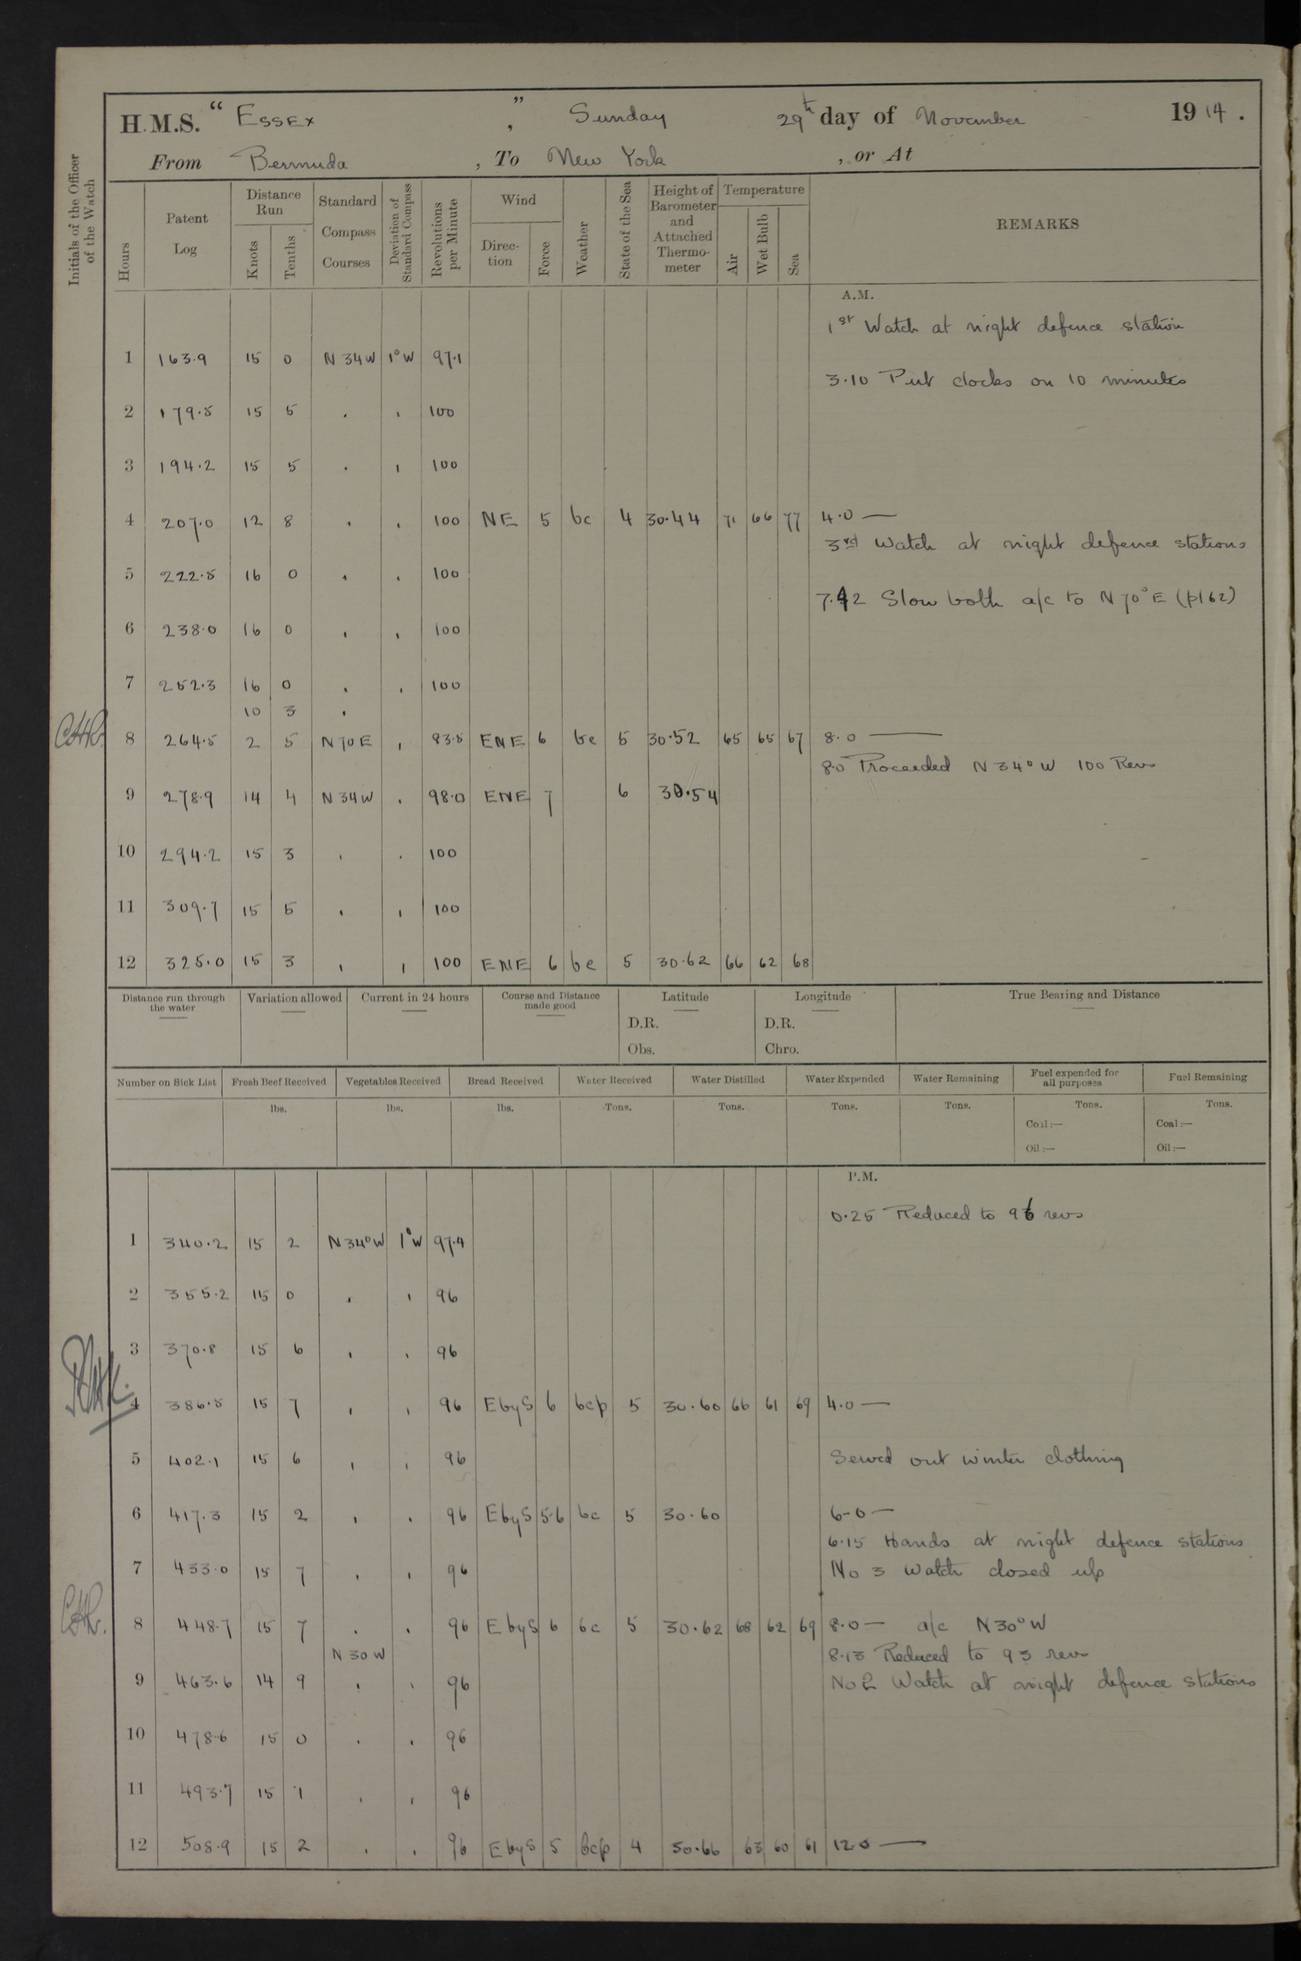 H.M.S. “ Essex ” , Sunday 29th day of November 1914 .
From Bermuda , To New York , or At
Initials of the Officer of the Watch
Hours Patent Log Distance Run Knots Tenths Standard Compass Courses Deviation of Standard Compass Revolutions per Minute Wind Direction Force Weather State of the Sea Height of Barometer and Attached Thermometer Temperature Air Wet Bulb Sea REMARKS
A.M.
1st Watch at night defence station
1 163.9 15 0 N 34 W 1° W 97.1
3.10 Put clocks on 10 minutes
2 179.5 15 5 . , 100
3 194.2 15 5 . , 100
4 207.0 12 8 . . 100 NE 5 bc 4 30.44 71 66 77 4.0 —
3rd Watch at night defence stations
5 222.5 16 0 . . 100
7.42 Slow both a/c to N 70° E (p162)
6 238.0 16 0 , , 100
7 252.3 16 0 . . 100
10 3 .
8 264.5 2 5 N 70 E , 93.5 ENE 6 bc 5 30.52 65 65 67 8.0 —
8.0 Proceeded N 34° W 100 Revs
9 278.9 14 4 N 34 W . 98.0 ENE 7 6 30.54
10 294.2 15 3 , . 100
11 309.7 15 5 , , 100
12 325.0 15 3 , , 100 ENE 6 bc 5 30.62 66 62 68
Distance run through the water Variation allowed Current in 24 hours Course and Distance made good Latitude Longitude True Bearing and Distance
D.R. D.R.
Obs. Chro.
Number on Sick List Fresh Beef Received Vegetables Received Bread Received Water Received Water Distilled Water Expended Water Remaining Fuel expended for all purposes Fuel Remaining
lbs. lbs. lbs. Tons. Tons. Tons. Tons. Tons. Tons.
Coal :— Coal :—
Oil :— Oil :—
P.M.
0.25 Reduced to 96 revs
1 340.2 15 2 N 34° W 1° W 97.4
2 355.2 15 0 , , 96
3 370.8 15 6 , , 96
4 386.5 15 7 , , 96 E by S 6 bcp 5 30.60 66 61 69 4.0 —
5 402.1 15 6 , , 96 Served out winter clothing
6 417.3 15 2 , . 96 E by S 5-6 bc 5 30.60 6-0 —
6.15 Hands at night defence stations
7 433.0 15 7 . , 96 No 3 Watch closed up
8 448.7 15 7 . . 96 E by S 6 bc 5 30.62 68 62 69 8.0 — a/c N 30° W
N 30 W 8.13 Reduced to 93 revs
9 463.6 14 9 , , 96 No 2 Watch at night defence stations
10 478.6 15 0 . . 96
11 493.7 15 1 , , 96
12 508.9 15 2 . . 96 E by S 5 bcp 4 30.66 63 60 61 12.0 —